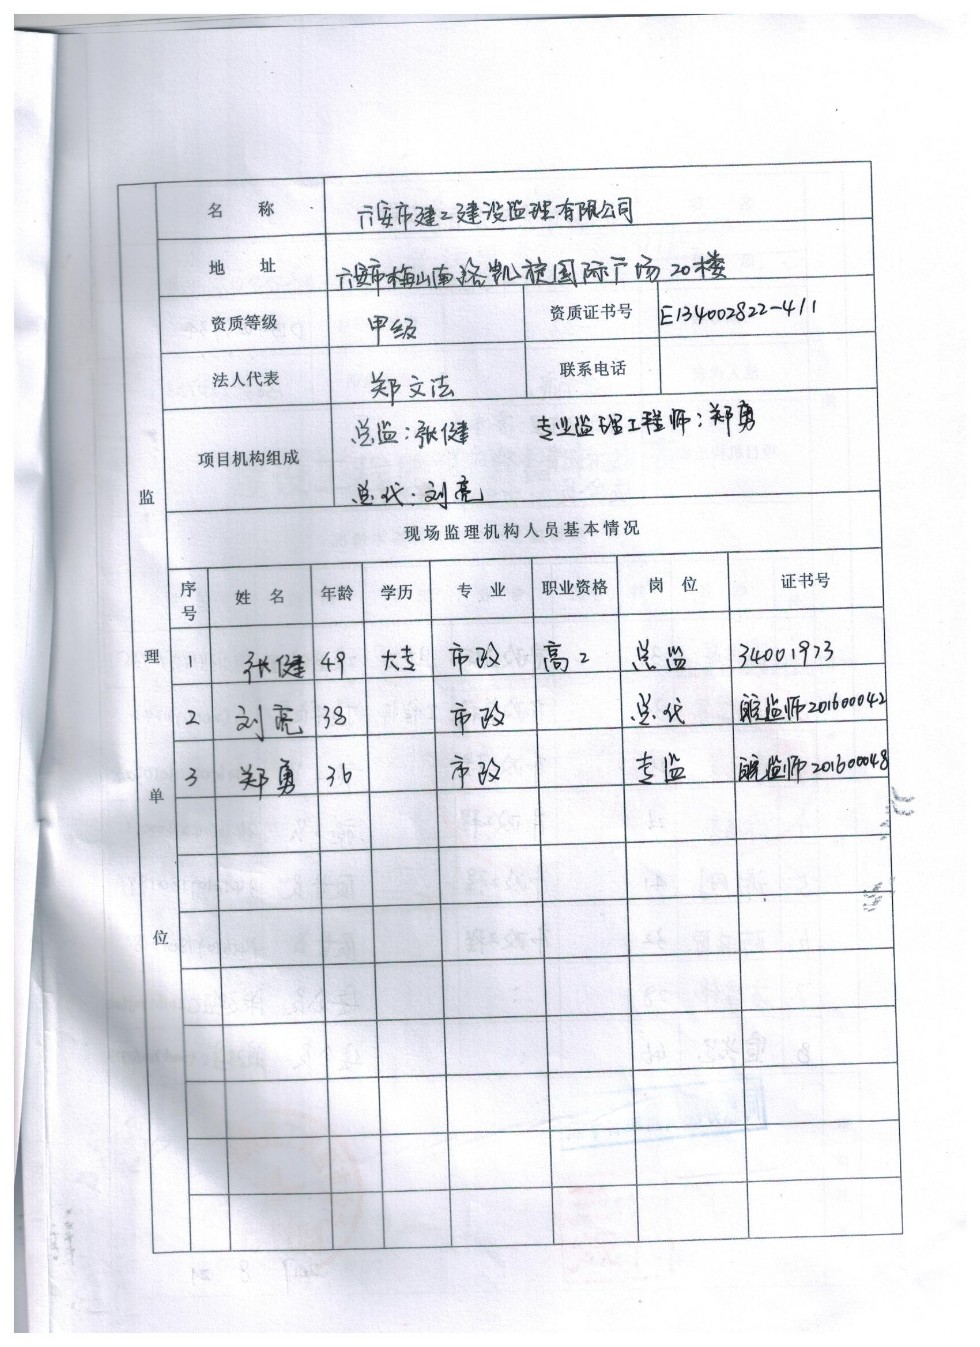 名 称 六安市建工建设监理有限公司
地 址 六安市梅山南路凯旋国际广场20楼
资质等级 甲级 资质证书号 E134002822-4/1
法人代表 郑文法 联系电话
项目机构组成 总监:张健 专业监理工程师:郑勇
总代:刘亮
监理单位
现场监理机构人员基本情况
序号 姓 名 年龄 学历 专 业 职业资格 岗 位 证书号
1 张健 49 大专 市政 高工 总监 34001973
2 刘亮 38 市政 总代 皖监师201600042
3 郑勇 36 市政 专监 皖监师201600048